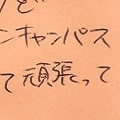 ど
ンキャンパス
て頑張って